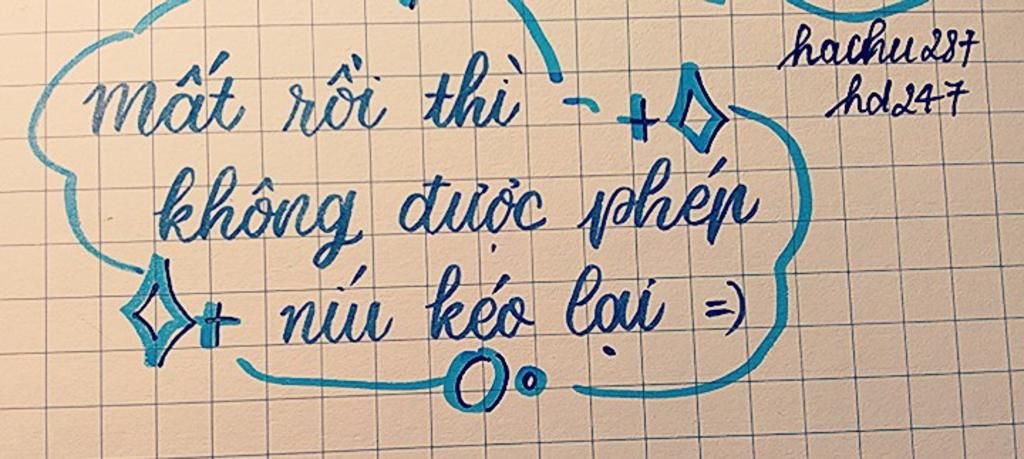 mất rồi thì
hachu287
hd247
không được phép
níu kéo lại =)